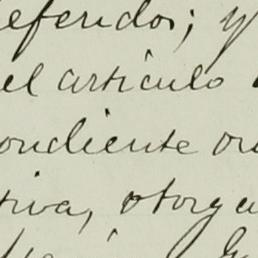 eferidos; y
el articulo
ondiente or
tiva, otorgu